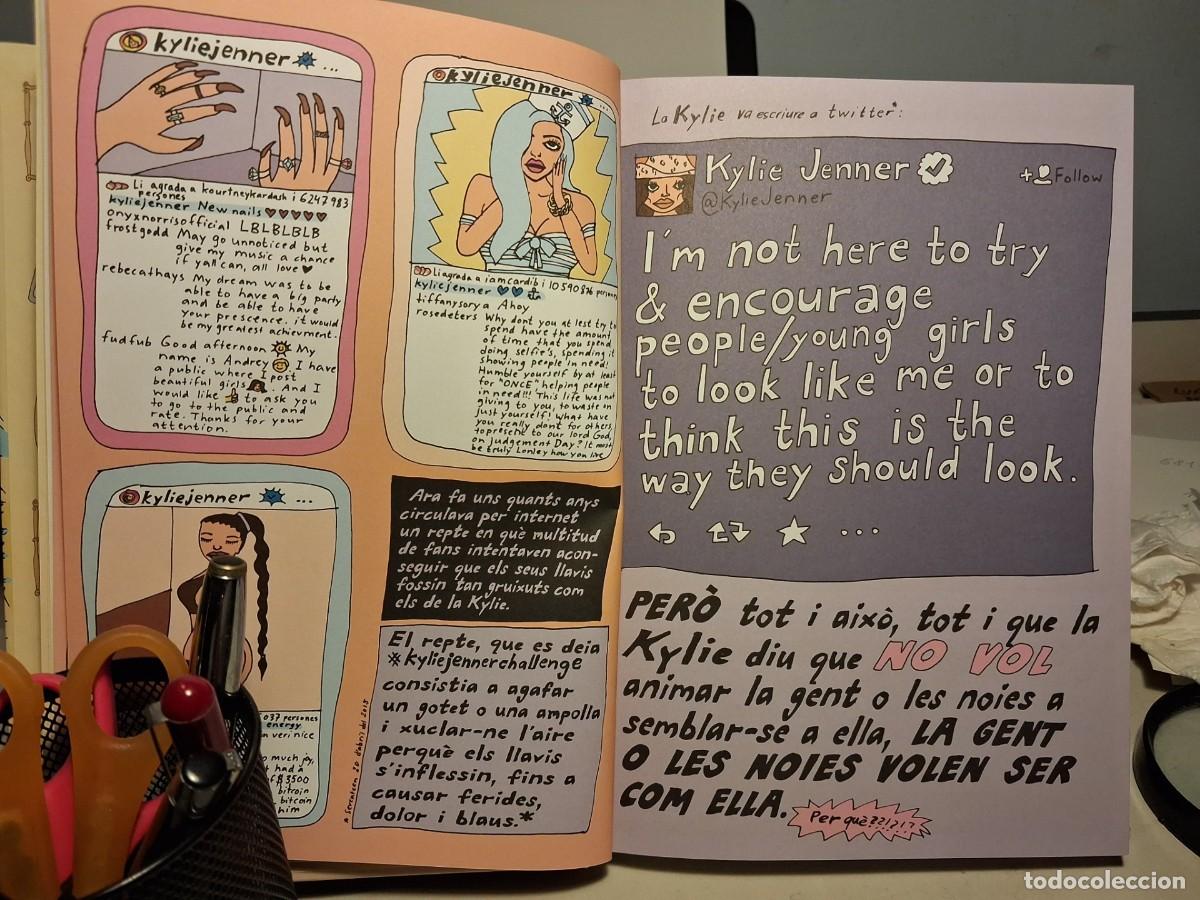 kyliejenner ...
Li agrada a kourtneykardash i 6247983
persones
kyliejenner New nails ♥♥♥♥♥
onyxnorrisofficial LBLBLBLB
frostgodd May go unnoticed but
give my music a chance
if yall can, all love ♥
rebecathays My dream was to be
able to have a big party
and be able to have
your prescence. it would
be my greatest achievment.
fudfub Good afternoon My
name is Andrey I have
a public where I post
beautiful girls. And I
would like to ask you
to go to the public and
rate. Thanks for your
attention.
kyliejenner ...
Li agrada a iamcardib i 10590876 person
kyliejenner
tiffanysorya Ahoy
rosedeters Why dont you at lest try to
spend have the amount
of time that you spend
doing selfie's, spending it
showing people in need!
Humble yourself by at least
for "ONCE" helping people
in need!!! This life was not
giving to you, to waste on
just yourself! What have
you really dont for others,
to present to our lord God,
on Judgement Day? It must
be truly Lonley how you live
kyliejenner ...
037 persones
energy
n veri nice
o much joy,
t had a
of $3500
bitcoin
him
Ara fa uns quants anys
circulava per internet
un repte en què multitud
de fans intentaven acon-
seguir que els seus llavis
fossin tan gruixuts com
els de la Kylie.
El repte, que es deia
*kyliejennerchallenge
consistia a agafar
un gotet o una ampolla
i xuclar-ne l'aire
perquè els llavis
s'inflessin, fins a
causar ferides,
dolor i blaus.*
La Kylie va escriure a twitter*:
Kylie Jenner
@KylieJenner
Follow
I'm not here to try
& encourage
people/young girls
to look like me or to
think this is the
way they should look.
...
PERÒ tot i això, tot i que la
Kylie diu que NO VOL
animar la gent o les noies a
semblar-se a ella, LA GENT
O LES NOIES VOLEN SER
COM ELLA.
Per què??!?!?
todocoleccion